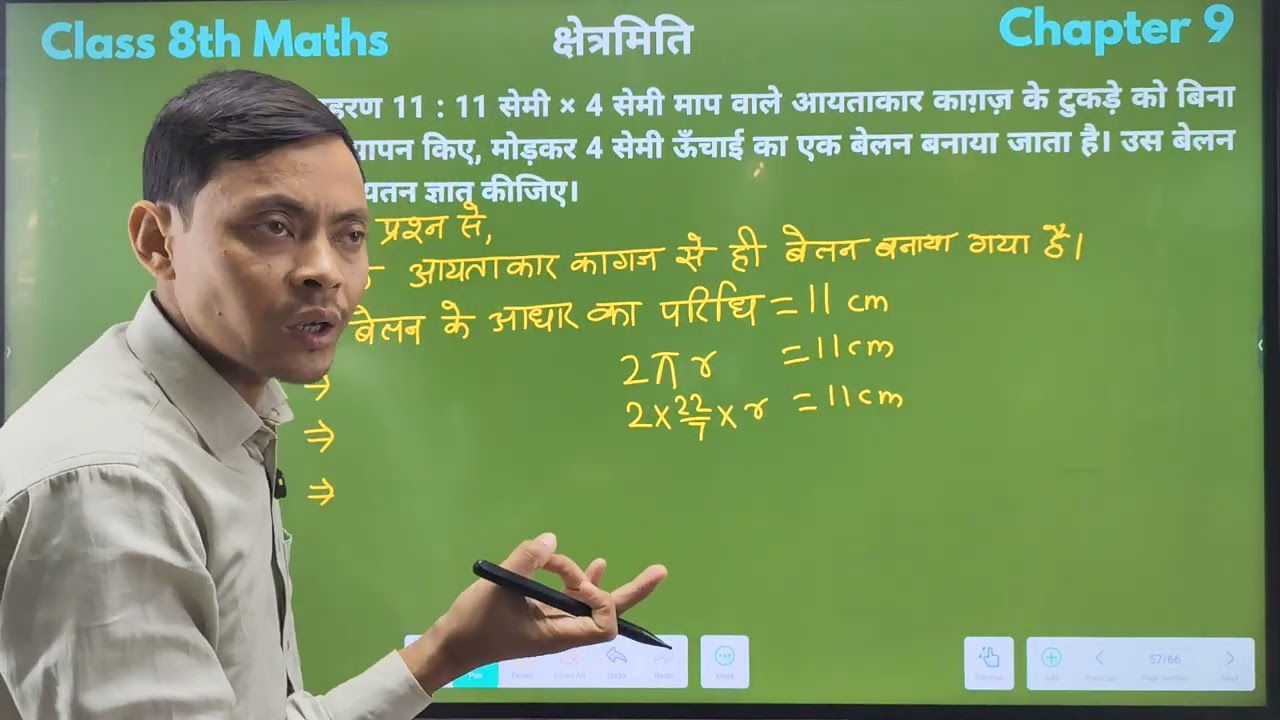 Class 8th Maths
क्षेत्रमिति
Chapter 9
11 : 11 सेमी × 4 सेमी माप वाले आयताकार काग़ज़ के टुकड़े को बिना
किए, मोड़कर 4 सेमी ऊँचाई का एक बेलन बनाया जाता है। उस बेलन
ज्ञात कीजिए।
प्रश्न से,
आयताकार कागज से ही बेलन बनाया गया है।
बेलन के आधार का परिधि = 11 cm
⇒ 2πr = 11 cm
⇒ 2 × 22/7 × r = 11 cm
⇒
Pen
Clear All
Undo
Redo
More
Preview
Add
Previous
57/66
Page number
Next